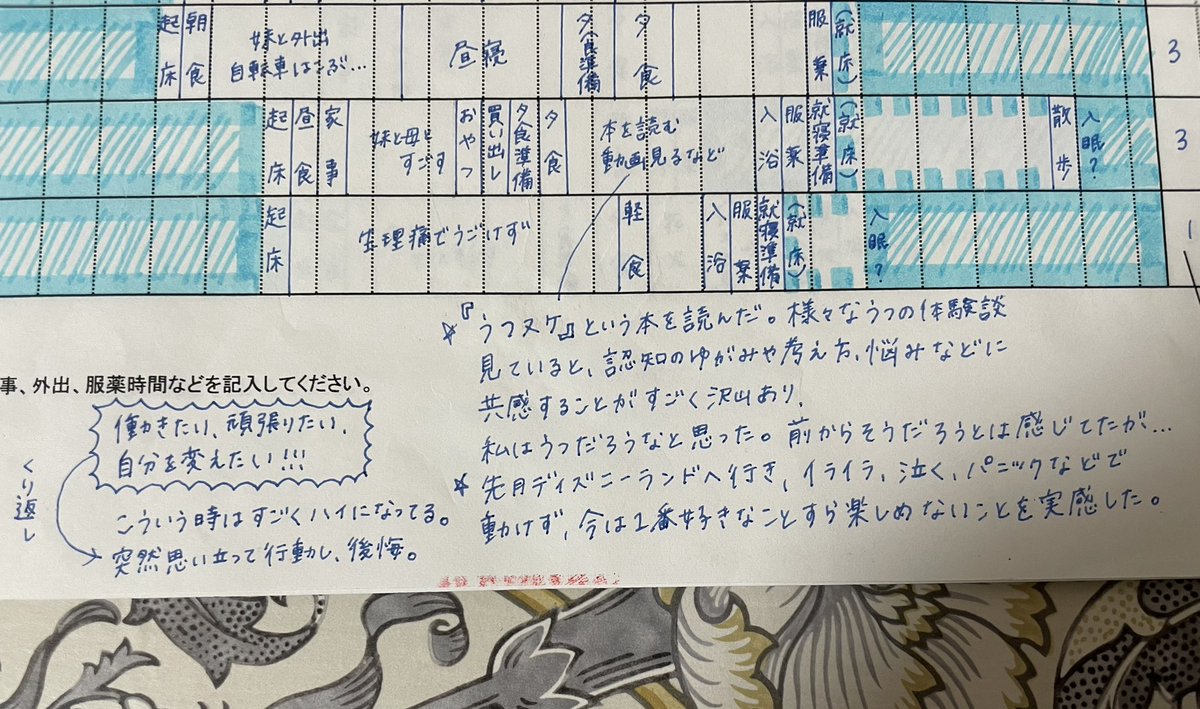 起床
朝食
妹と外出
自転車はこぶ…
昼寝
夕食準備
夕食
服薬
(就床)
3
起床
昼食
家事
妹と母と
すごす
おやつ
買い出し
夕食準備
夕食
本を読む
動画見るなど
入浴
服薬
就寝準備
(就床)
散歩
入眠?
3
起床
生理痛でうごけず
軽食
入浴
服薬
就寝準備
(就床)
入眠?
1
☆『うつヌケ』という本を読んだ。様々なうつの体験談
見ていると、認知のゆがみや考え方、悩みなどに
共感することがすごく沢山あり、
私はうつだろうなと思った。前からそうだろうとは感じてたが…
☆先月ディズニーランドへ行き、イライラ、泣く、パニックなどで
動けず、今は1番好きなことすら楽しめないことを実感した。
事、外出、服薬時間などを記入してください。
働きたい、頑張りたい、
自分を変えたい!!!
くり返し
こういう時はすごくハイになってる。
突然思い立って行動し、後悔。